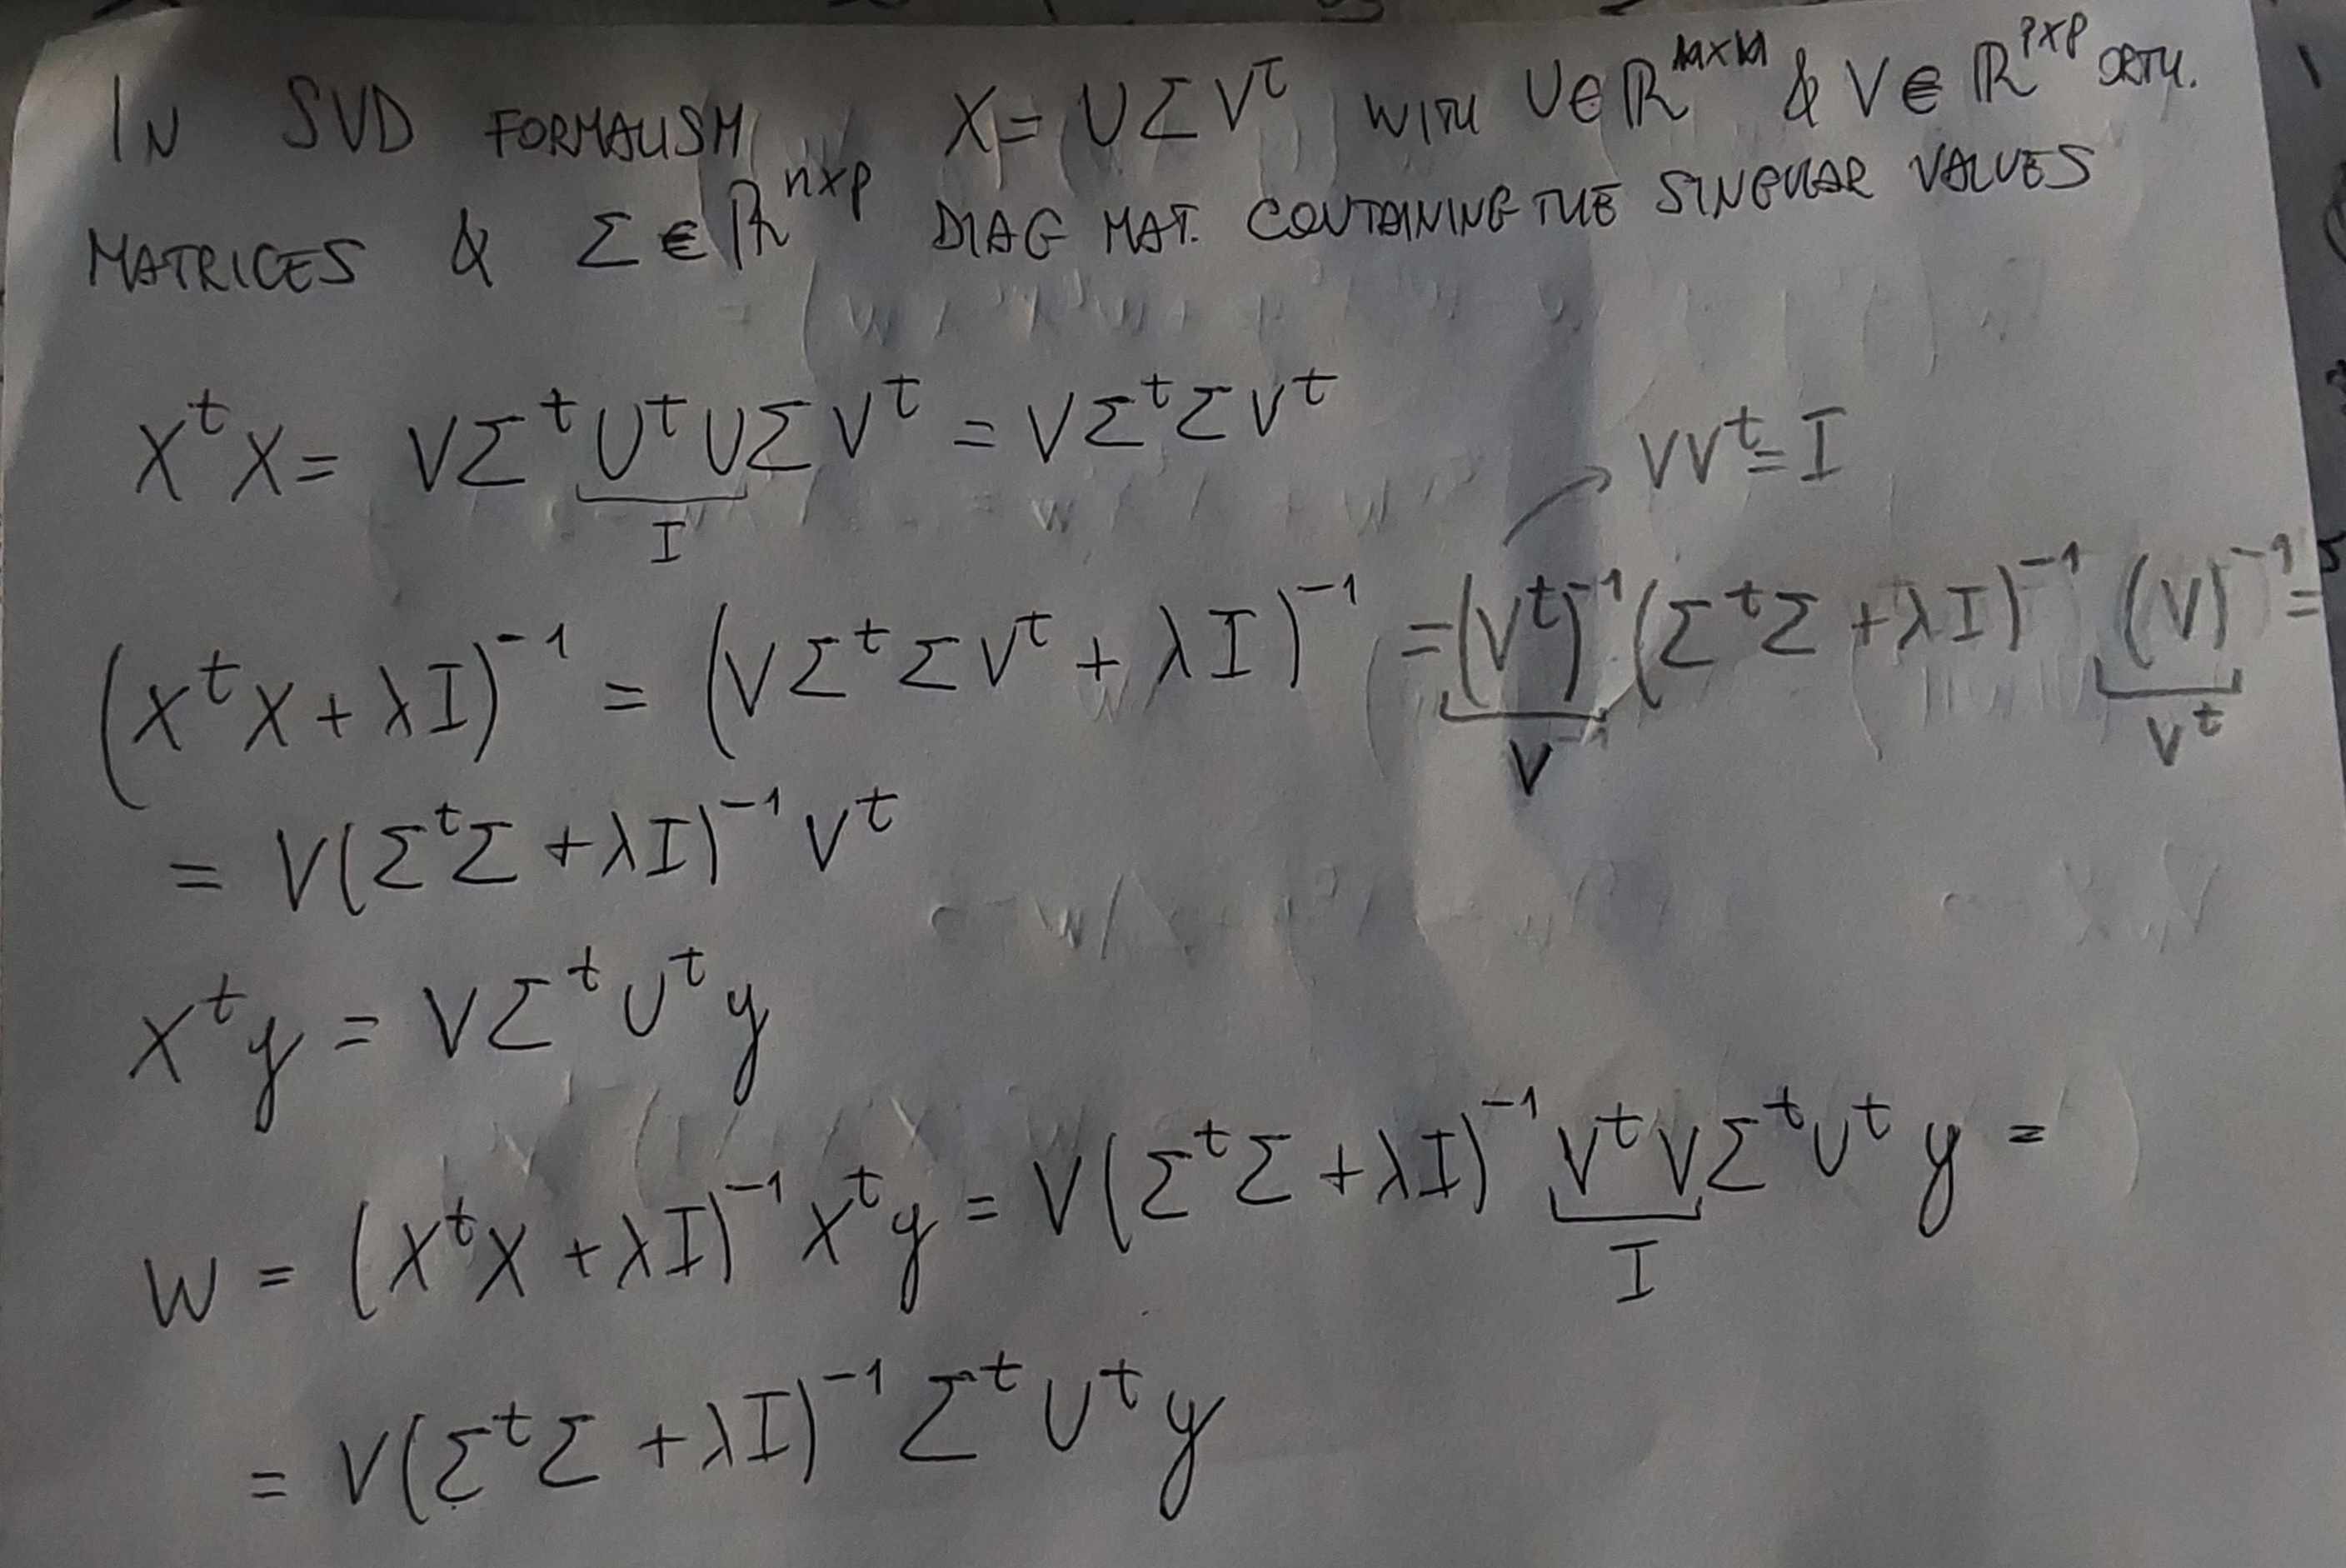 IN SVD FORMALISM X = UΣV^t WITH U∈ℝ^{n×n} & V∈ℝ^{p×p} ORTH.
MATRICES & Σ∈ℝ^{n×p} DIAG MAT. CONTAINING THE SINGULAR VALUES
X^t X = VΣ^t U^t UΣV^t = VΣ^t ΣV^t
I
VV^t = I
(X^t X + λI)^{-1} = (VΣ^t ΣV^t + λI)^{-1} = (V^t)^{-1} (Σ^t Σ + λI)^{-1} (V)^{-1} =
V V^t
= V(Σ^t Σ + λI)^{-1} V^t
X^t y = VΣ^t U^t y
W = (X^t X + λI)^{-1} X^t y = V(Σ^t Σ + λI)^{-1} V^t VΣ^t U^t y =
I
= V(Σ^t Σ + λI)^{-1} Σ^t U^t y